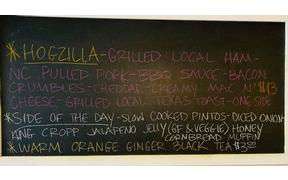 * HOGZILLA - GRILLED LOCAL HAM -
NC PULLED PORK - BBQ SAUCE - BACON
CRUMBLES - CHEDDAR - CREAMY MAC N' $13
CHEESE - GRILLED LOCAL TEXAS TOAST - ONE SIDE
* SIDE OF THE DAY - SLOW COOKED PINTOS - DICED ONION
KING CROPP JALAPENO JELLY (GF & VEGGIE) HONEY
CORNBREAD MUFFIN
* WARM ORANGE GINGER BLACK TEA $3.50